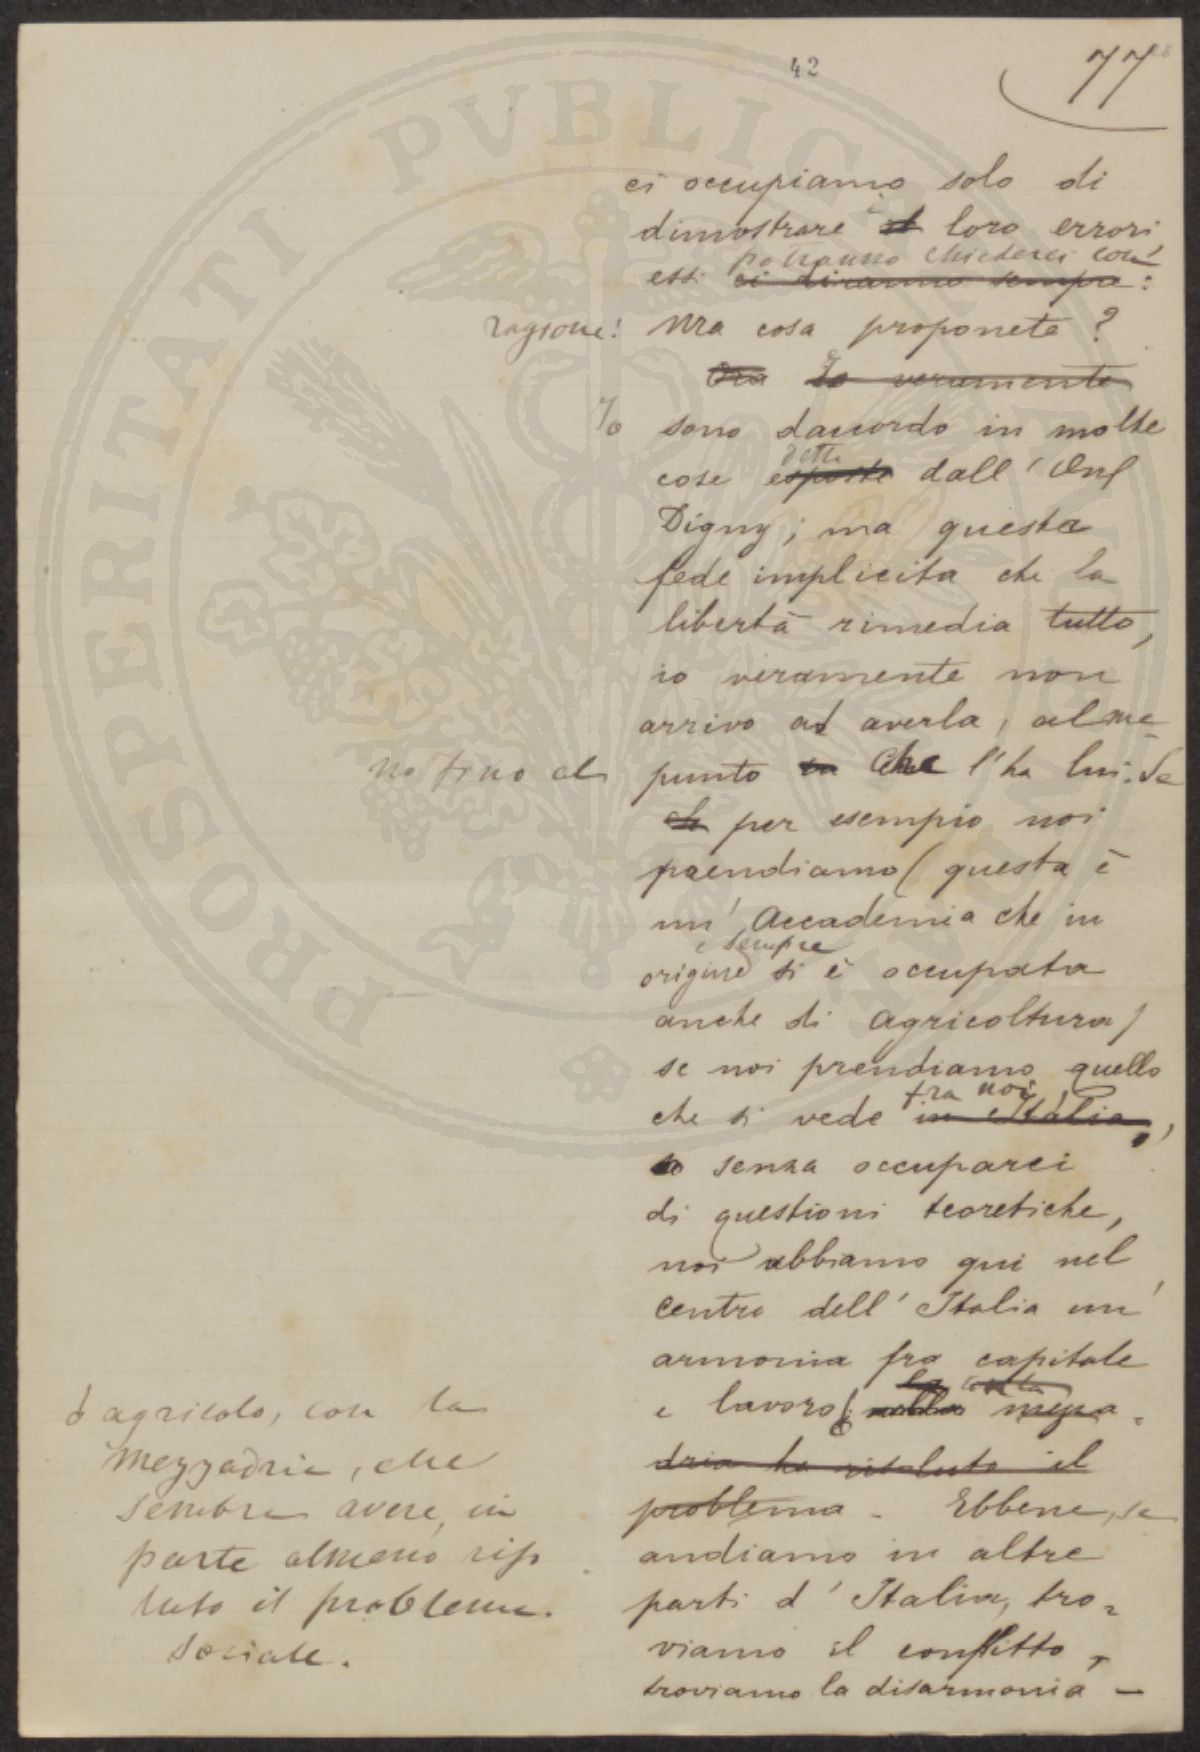 42
77
ci occupiamo solo di
dimostrare i loro errori
potranno chiederci con
essi ci diranno sempre:
ragione: Ma cosa proponete?
Ora Io veramente
Io sono daccordo in molte
dette
cose esposte dall' On
Digny; ma questa
fede implicita che la
libertà rimedia tutto,
io veramente non
arrivo ad averla, alme-
no fino al punto che l'ha lui. Se
ch per esempio noi
prendiamo (questa è
un' Accademia che in
e sempre
origine si è occupata
anche di agricoltura)
se noi prendiamo quello
fra noi,
che si vede in Italia,
senza occuparci
di questioni teoretiche,
noi abbiamo qui nel
centro dell' Italia un'
armonia fra capitale
la
e lavoro nella mezza-
dria ha risoluto il
problema. Ebbene, se
andiamo in altre
parti d' Italia, tro-
viamo il conflitto,
troviamo la disarmonia -
agricolo, con la
mezzadria, che
sembra avere, in
parte almeno riso
luto il problema
sociale.
PROSPERITATI PVBLICAE